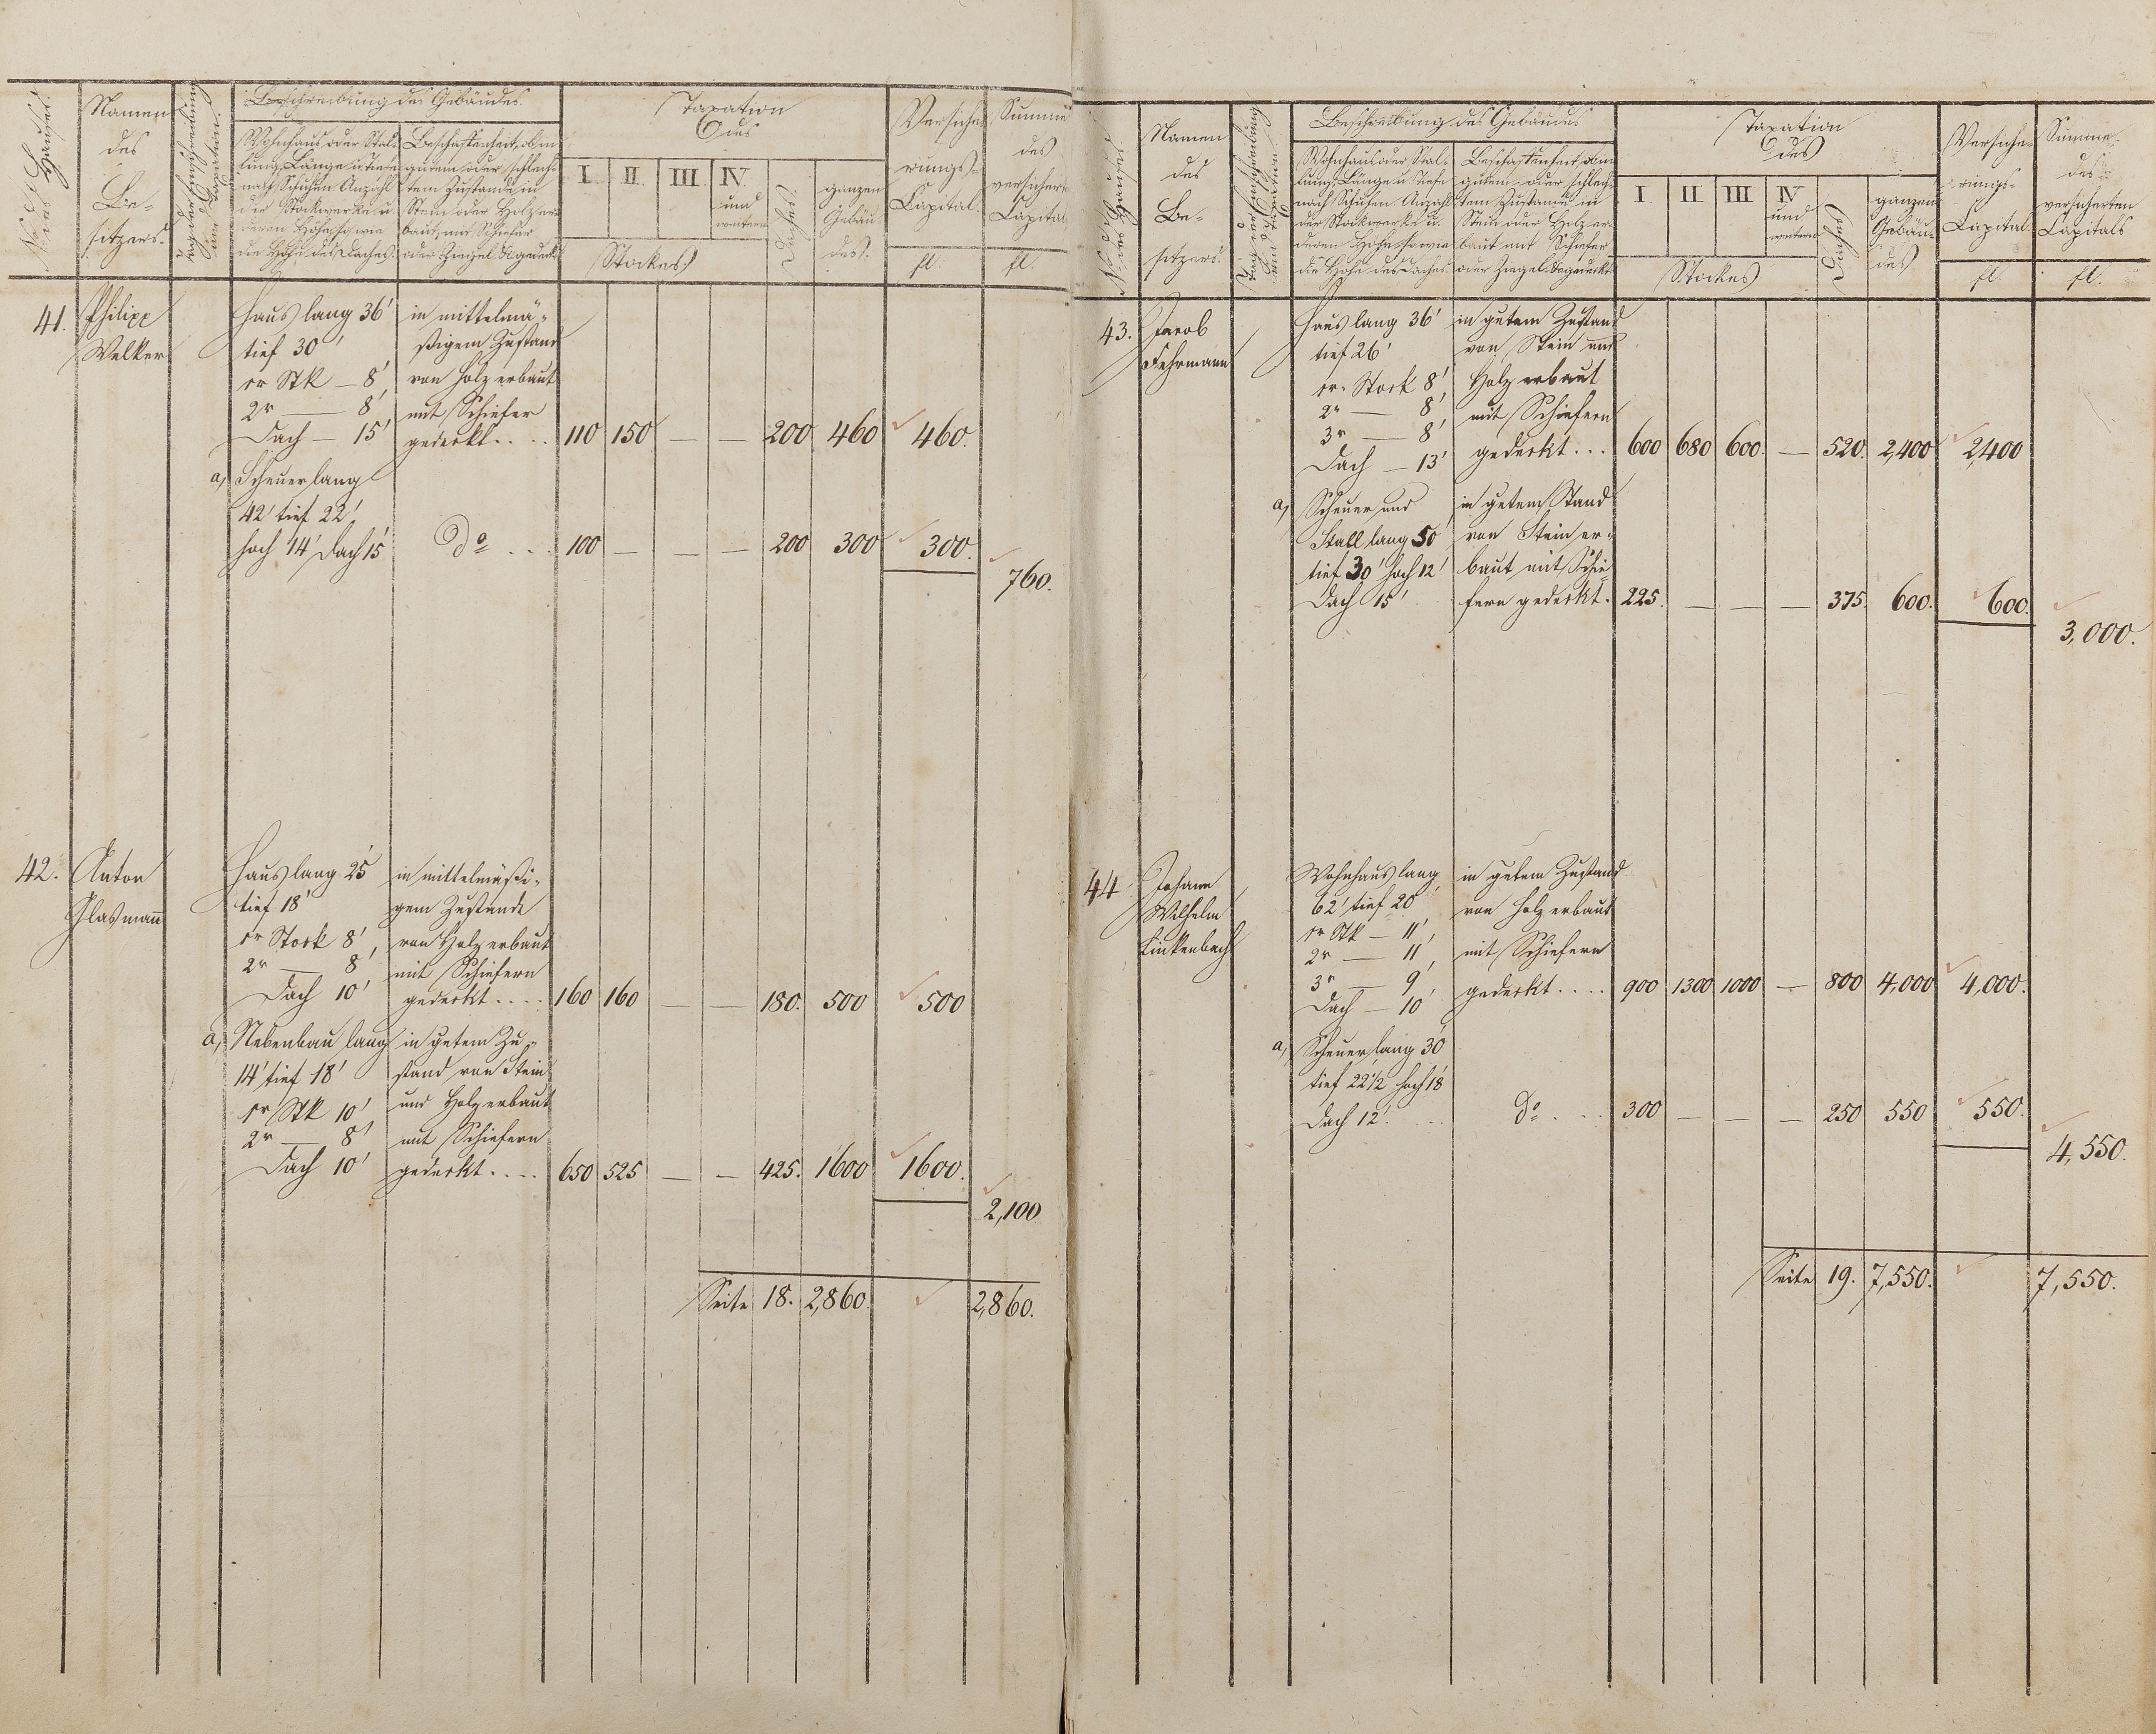 No des Hauses.
Namen
des
Be-
sitzers.
Tag der Einschreibung
und Taxation.
Beschreibung des Gebäudes.
Wohnhaus oder Stal-
lung, Länge u Tiefe
nach Schuhen Anzahl
der Stockwerke u.
deren Höhe sowie
die Höhe des Daches
Beschaffenheit, ob in
gutem oder schlech-
tem Zustande in
Stein oder Holz er-
baut, mit Schiefer
oder Ziegel & gedeckt
Taxation
des
I. II. III. IV.
und
weitern
Stockes
Daches.
ganzen
Gebäu-
des.
Versiche-
rungs-
Capital.
fl.
Summe
des
versichert
Capital
fl.
41. Philipp
Welker
Haus lang 36'
tief 30'
1r Stk — 8'
2r — 8'
Dach — 15'
in mittelmä-
ßigem Zustand
von Holz erbaut
mit Schiefer
gedeckt . . . . 110 150 — — 200 460 460.
a, Scheuer lang
42' tief 22'
hoch 14' Dach 15' do . . . 100 — — — 200 300 300.
760.
42. Anton
Glasmann
Haus lang 25'
tief 18'
1r Stock 8'
2r — 8'
Dach 10'
in mittelmäßi-
gem Zustande
von Holz erbaut
mit Schiefern
gedeckt . . . . 160 160 — — 180. 500 500
a, Nebenbau lang
14' tief 18'
1r Stk 10'
2r — 8'
Dach 10'
in gutem Zu-
stand von Stein
und Holz erbaut
mit Schiefern
gedeckt . . . . 650 525 — — 425. 1600 1600.
2,100
Seite 18. 2,860. 2,860.
No des Hauses
Namen
des
Be-
sitzers.
Tag der Einschreibung
und Taxation.
Beschreibung des Gebäudes
Wohnhaus oder Stal-
lung, Länge u Tiefe
nach Schuhen Anzahl
der Stockwerke u.
deren Höhe sowie
die Höhe des Daches
Beschaffenheit, ob in
gutem oder schlech-
tem Zustande in
Stein oder Holz er-
baut mit Schiefer
oder Ziegel & gedeckt
Taxation
des
I II III IV
und
weitern
Stockes
Daches
ganzen
Gebäu-
des
Versiche-
rungs-
Capital.
fl.
Summe
des
versicherten
Capitals
fl.
43. Jacob
Fehrmann
Haus lang 36'
tief 26'
1r Stock 8'
2r — 8'
3r — 8'
Dach — 13'
in gutem Zustand
von Stein und
Holz erbaut
mit Schiefern
gedeckt . . . 600 680 600. — 520. 2,400 2,400
a, Scheuer und
Stall lang 50'
tief 30' hoch 12'
Dach 15'
in gutem Stand
von Stein er-
baut mit Schie-
fern gedeckt. 225. — — — 375. 600. 600.
3,000.
44 Johann
Wilhelm
Linkenbach
Wohnhaus lang
62' tief 20'
1r Stk — 11'
2r — 11'
3r — 9'
Dach — 10'
in gutem Zustand
von Holz erbaut
mit Schiefern
gedeckt . . . . 900 1300 1000 — 800 4,000 4,000.
a, Scheuer lang 30'
tief 22 1/2 hoch 18'
Dach 12'. . . do . . . 300 — — — 250 550 550.
4,550.
Seite 19. 7,550. 7,550.